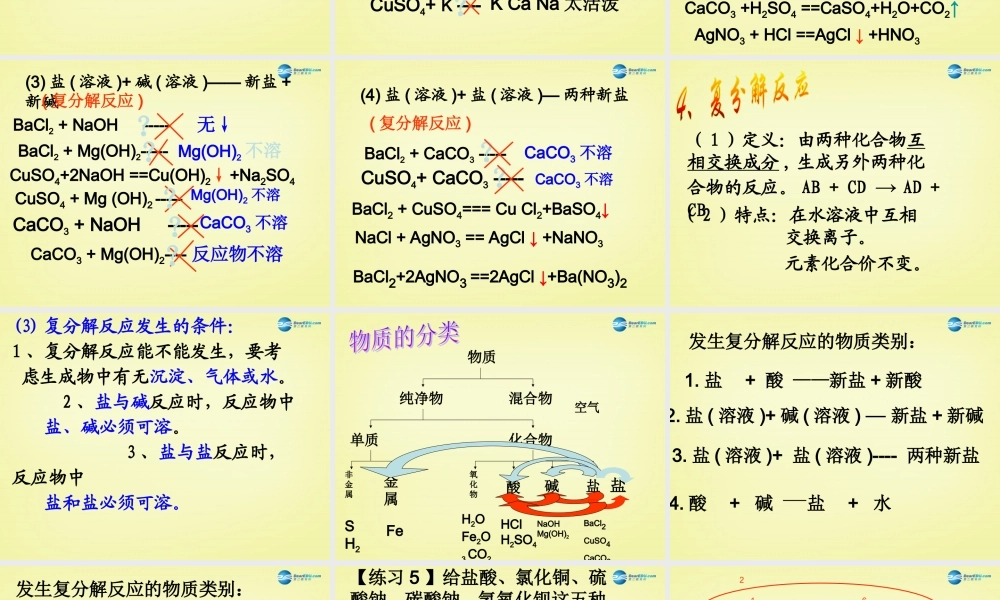 CuSO4+ K ---- K Ca Na 太活泼
CaCO3 +H2SO4 ==CaSO4+H2O+CO2↑
AgNO3 + HCl ==AgCl ↓ +HNO3
(3) 盐 ( 溶液 )+ 碱 ( 溶液 )—— 新盐 +
新碱
( 复分解反应 )
BaCl2 + NaOH ----- 无↓
BaCl2 + Mg(OH)2----- Mg(OH)2 不溶
CuSO4+2NaOH ==Cu(OH)2 ↓ +Na2SO4
CuSO4 + Mg (OH)2 ----- Mg(OH)2 不溶
CaCO3 + NaOH ----- CaCO3 不溶
CaCO3 + Mg(OH)2---- 反应物不溶
(4) 盐 ( 溶液 )+ 盐 ( 溶液 )— 两种新盐
( 复分解反应 )
BaCl2 + CaCO3 ----- CaCO3 不溶
CuSO4+ CaCO3 ------ CaCO3 不溶
BaCl2 + CuSO4=== Cu Cl2+BaSO4↓
NaCl + AgNO3 == AgCl ↓ +NaNO3
BaCl2+2AgNO3 ==2AgCl ↓+Ba(NO3)2
4、复分解反应
( 1 ) 定义：由两种化合物互
相交换成分 , 生成另外两种化
合物的反应。 AB + CD → AD +
CB
( 2 ) 特点：在水溶液中互相
交换离子。
元素化合价不变。
(3) 复分解反应发生的条件：
1 、复分解反应能不能发生，要考
虑生成物中有无沉淀、气体或水。
2 、盐与碱反应时，反应物中
盐、碱必须可溶。
3 、盐与盐反应时，
反应物中
盐和盐必须可溶。
物质的分类
物质
纯净物 混合物
空气
单质 化合物
非金属 金属 氧化物 酸 碱 盐 盐
S
H2
Fe
H2O
Fe2O
3 CO2
HCl
H2SO4
NaOH
Mg(OH)2
BaCl2
CuSO4
CaCO3
发生复分解反应的物质类别：
1. 盐 + 酸 ——新盐 + 新酸
2. 盐 ( 溶液 )+ 碱 ( 溶液 ) — 新盐 + 新碱
3. 盐 ( 溶液 )+ 盐 ( 溶液 )---- 两种新盐
4. 酸 + 碱 —盐 + 水
发生复分解反应的物质类别：
【练习 5 】给盐酸、氯化铜、硫
酸钠、碳酸钠、氢氧化钡这五种
2